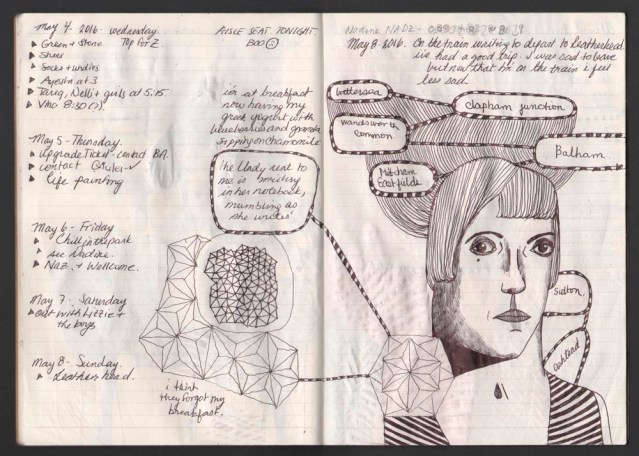 May 4. 2016 - Wednesday.
Green + Stone Top for Z.
Shoes
Socks + undies
Ayesha at 3
Tareq, Nelli + girls at 5.15
8:30 (?).
May 5 - Thursday.
upgrade Ticket - contact BA.
contact
life painting
May 6 - Friday
Chill in the park
see Nadine.
Naz. + Wellcome.
May 7. Saturday
out with Lizzie +
the boys
May 8 - Sunday.
Leatherhead.
AISLE SEAT TONIGHT
i'm at breakfast
now having my
greek yogurt with
blueberries and granola
sipping on chamomile
the lady next to
me is smiling
in her notebook,
mumbling as
she writes'
i think
they forgot my
breakfast.
Nadine NADZ -
May 8 - 2016. On the train waiting to depart to Leatherhead.
i've had a good trip. i was sad to leave
but now that i'm on the train i feel
less sad.
battersea
clapham junction
wandsworth
common
Balham.
Mitcham
Eastfields
Sutton.
ashtead